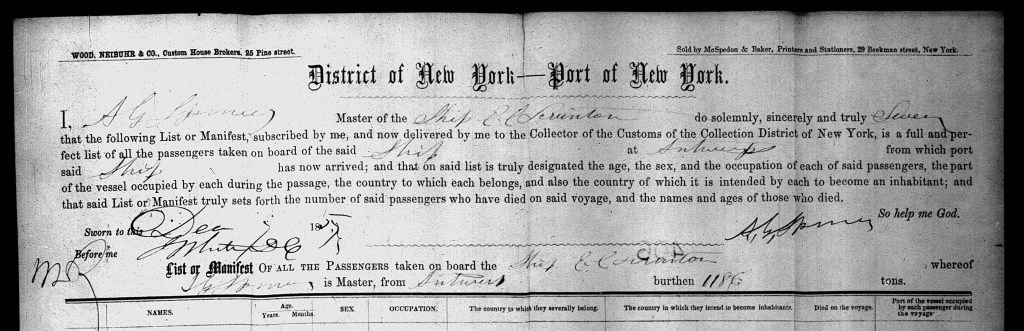 WOOD, NEIBUHR & CO., Custom House Brokers, 25 Pine street.
Sold by McSpedon & Baker, Printers and Stationers, 29 Beekman street, New York.
District of New York—Port of New York.
I, A G Spencer Master of the Ship E C Scranton do solemnly, sincerely and truly Swear
that the following List or Manifest, subscribed by me, and now delivered by me to the Collector of the Customs of the Collection District of New York, is a full and per-
fect list of all the passengers taken on board of the said Ship at Antwerp from which port
said Ship has now arrived; and that on said list is truly designated the age, the sex, and the occupation of each of said passengers, the part
of the vessel occupied by each during the passage, the country to which each belongs, and also the country of which it is intended by each to become an inhabitant; and
that said List or Manifest truly sets forth the number of said passengers who have died on said voyage, and the names and ages of those who died.
So help me God.
Sworn to this Dec 185
A G Spencer
Before me
List or Manifest OF ALL THE PASSENGERS taken on board the Ship E C Scranton whereof
A G Spencer is Master, from Antwerp burthen 1186 tons.
NAMES.
Age.
Years. Months.
SEX.
OCCUPATION.
The country to which they severally belong.
The country in which they intend to become inhabitants.
Died on the voyage.
Part of the vessel occupied
by each passenger during
the voyage.